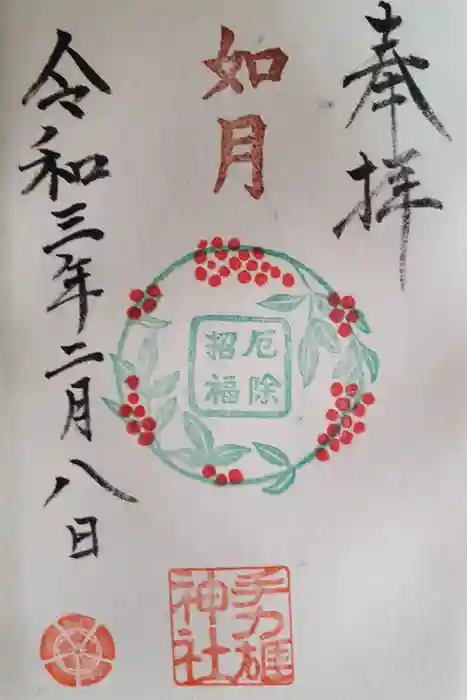 奉拝
如月
厄除
招福
手力雄
神社
令和三年二月八日